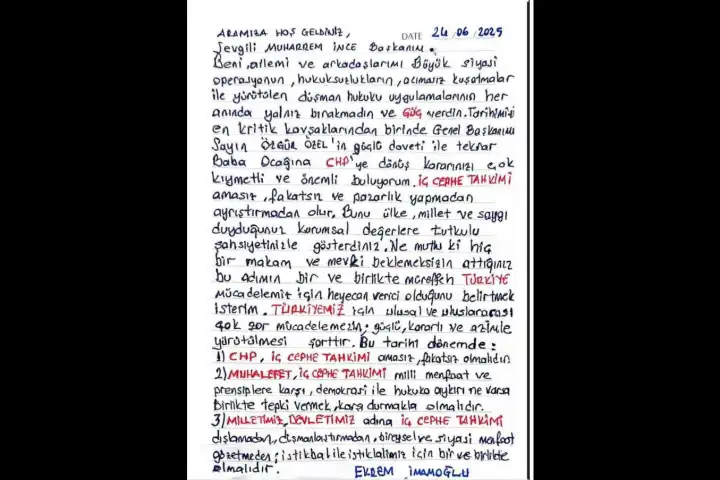 ARAMIZA HOŞ GELDİNİZ,
DATE 24/06/2025
Sevgili MUHARREM İNCE Başkanım.
Beni, ailemi ve arkadaşlarımı Büyük siyasi
operasyonun, hukuksuzlukların, acımasız kuşatmalar
ile yürütülen düşman hukuku uygulamalarının her
anında yalnız bırakmadın ve GÜÇ verdin. Tarihimizin
en kritik kavşaklarından birinde Genel Başkanımız
Sayın ÖZGÜR ÖZEL'in güçlü daveti ile tekrar
Baba Ocağına CHP'ye dönüş kararınızı çok
kıymetli ve önemli buluyorum. İÇ CEPHE TAHKİMİ
amasız, fakatsız ve pazarlık yapmadan
ayrıştırmadan olur. Bunu ülke, millet ve saygı
duyduğunuz kurumsal değerlere tutkulu
şahsiyetinizle gösterdiniz. Ne mutlu ki hiç
bir makam ve mevki beklemeksizin attığınız
bu adımın bir ve birlikte müreffeh TÜRKİYE
mücadelemiz için heyecan verici olduğunu belirtmek
isterim. TÜRKİYEMİZ için ulusal ve uluslararası
çok zor mücadelemizin; güçlü, kararlı ve azimle
yürütülmesi şarttır. Bu tarihi dönemde:
1) CHP, İÇ CEPHE TAHKİMİ amasız, fakatsız olmalıdır
2) MUHALEFET, İÇ CEPHE TAHKİMİ milli menfaat ve
prensiplere karşı, demokrasi ile hukuka aykırı ne varsa
birlikte tepki vermek, karşı durmakla olmalıdır.
3) MİLLETİMİZ, DEVLETİMİZ adına İÇ CEPHE TAHKİMİ
dışlamadan, düşmanlaştırmadan, bireysel ve siyasi menfaat
gözetmeden; istikbal ile istiklalimiz için bir ve birlikte
olmalıdır.
EKREM İMAMOĞLU